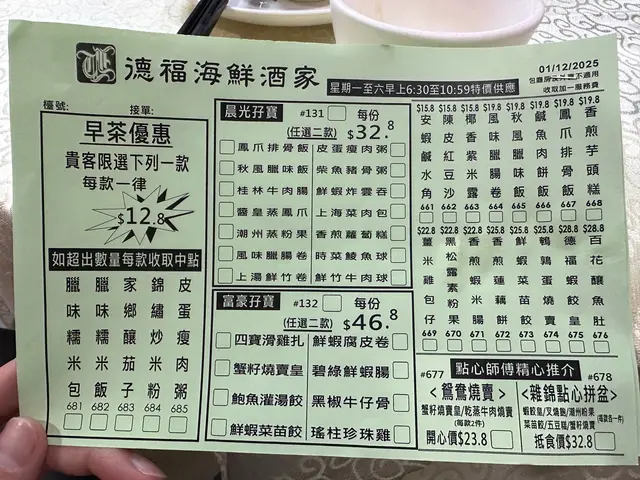 德福海鮮酒家
星期一至六早上6:30至10:59特價供應
01/12/2025
收取加一服務費
檯號:
接單:
早茶優惠
貴客限選下列一款
每款一律
$12.8
如超出數量每款收取中點
臘味糯米包 681
臘味糯米飯 682
家鄉釀茄子 683
錦繡炒米粉 684
皮蛋瘦肉粥 685
晨光孖寶 #131 每份
(任選二款) $32.8
鳳爪排骨飯 皮蛋瘦肉粥
秋風臘味飯 柴魚豬骨粥
桂林牛肉腸 鮮蝦炸雲吞
醬皇蒸鳳爪 上海菜肉包
潮州蒸粉果 香煎蘿蔔糕
風味臘腸卷 時菜鯪魚球
上湯鮮竹卷 鮮竹牛肉球
富豪孖寶 #132 每份
(任選二款) $46.8
四寶滑雞扎 鮮蝦腐皮卷
蟹籽燒賣皇 碧綠鮮蝦腸
鮑魚灌湯餃 黑椒牛仔骨
鮮蝦菜苗餃 瑤柱珍珠雞
$15.8 安蝦鹹水角 661
$15.8 陳皮紅豆沙 662
$15.8 椰香紫米露 663
$19.8 風味臘腸卷 664
$19.8 秋風臘味飯 665
$19.8 鹹魚肉餅飯 666
$19.8 鳳爪排骨飯 667
$19.8 香煎芋頭糕 668
$22.8 薑米雞包仔 669
$22.8 黑松露素粉果 670
$22.8 香煎蝦米腸 671
$22.8 香煎蓮藕餅 672
$22.8 鮮蝦菜苗餃 673
$22.8 鵪鶉蛋燒賣 674
$22.8 德福蝦餃皇 675
$22.8 百花釀魚肚 676
點心師傅精心推介
#677
<鴛鴦燒賣>
蟹籽燒賣皇/乾蒸牛肉燒賣
(每款2件)
開心價$23.8
#678
<雜錦點心拼盆>
蝦餃皇/叉燒飽/潮州粉果
菜苗餃/五豆糕/蟹籽燒賣
(每款各一件)
抵食價$32.8